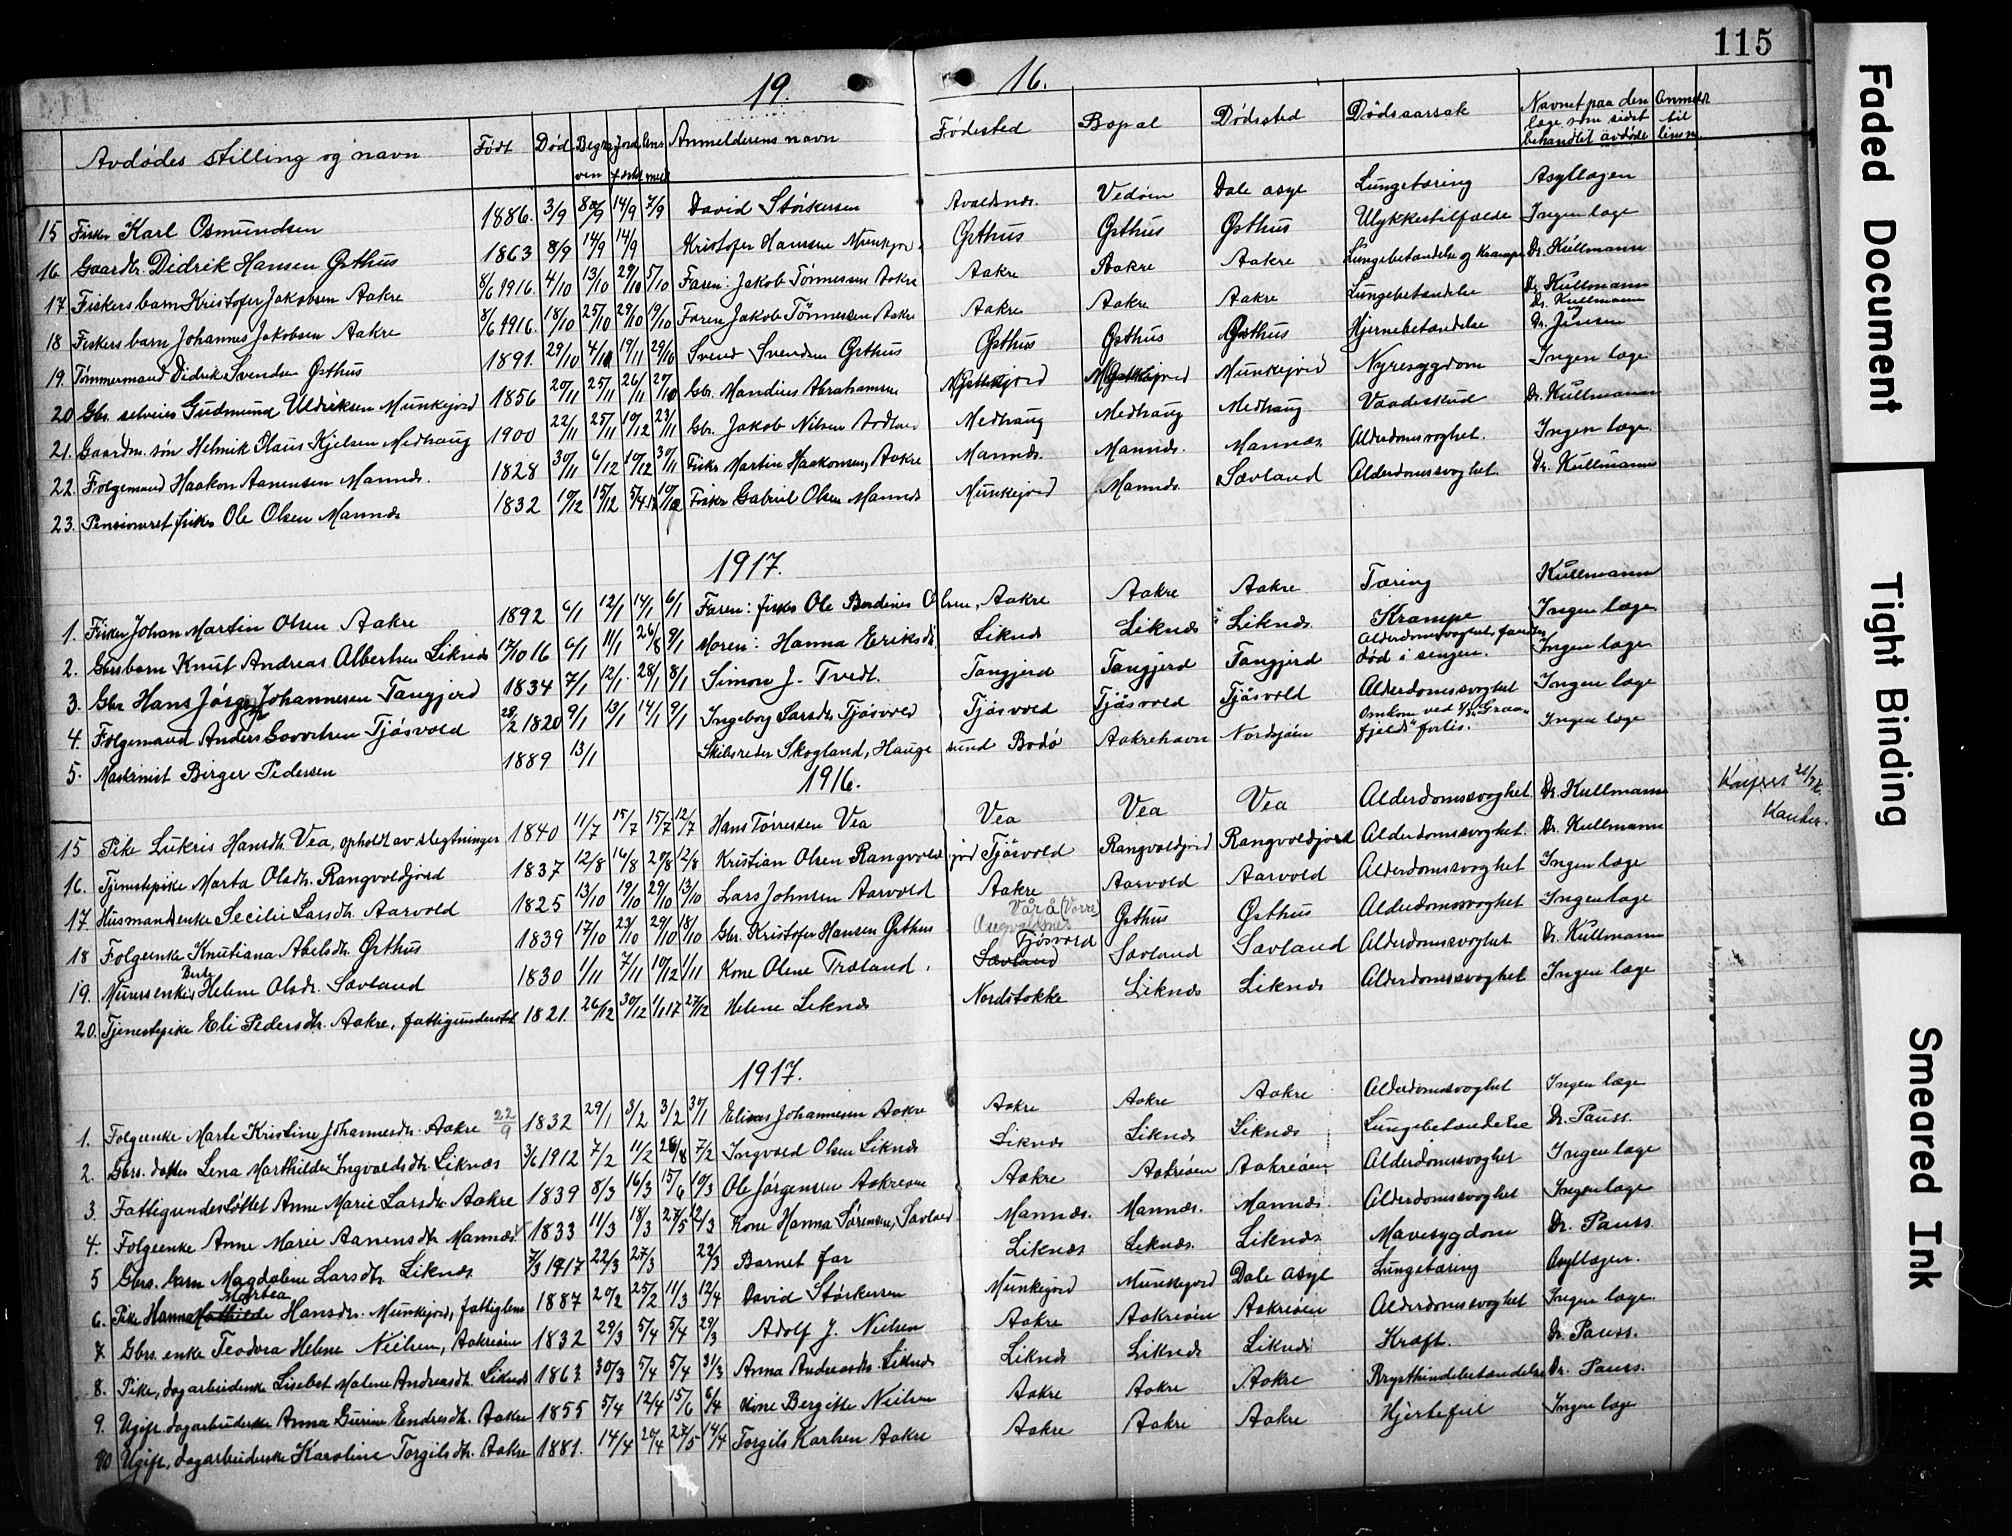 115
19. 16.
Avdødes stilling og navn Født Død Begra ven Jord fæstet Anmelderens navn Fødested Bopæl Dødssted Dødsaarsak Navnet paa den læge som sidst behandlet avdøde Anmeldt til
15 Fisker Karl Osmundsen 1886. 3/9 14/9 7/9 David Størkersen Avaldsnes. Vedøen Dale asyl Lungetæring Asyllægen
16. Gaardbr. Didrik Hansen Østhus 1863 8/9 14/9 14/9 Kristofer Hansen Munkejord Østhus Østhus Østhus Ulykkestilfælde Ingen læge
17 Fiskers barn Kristofer Jakobsen Aakre 8/6 1916. 4/10 13/10 29/10 5/10 Faren: Jakob Tønnessen Aakre Aakre Aakre Aakre Lungebetændelse og Krampe Dr. Kullmann
18 Fiskers barn Johannes Jakobsen Aakre 8/6 1916. 18/10 25/10 29/10 19/10 Faren Jakob Tönnessen Aakre Aakre Aakre Aakre Lungebetændelse Dr. Kullmann
19. Tømmermand Didrik Svendsen Østhus 1891. 29/10 4/11 19/11 29/10 Svend Svendsen Østhus Østhus Østhus Østhus Hjernebetændelse Dr. Kullmann og Dr. Jensen
20 Gbr. selveier Gudmund Uldriksen Munkejord 1856 20/11 25/11 26/11 Gbr. Mandius Abrahamsen Munkejord Munkejord Munkejord Nyresygdom Ingen læge
21. Gaardm. søn Helmik Olaus Kjelsen Medhaug 1900 22/11 25/11 10/12 23/11 Gbr. Jakob Nilsen Medhaug Medhaug Medhaug Vaadeskud Dr. Kullmann
22. Folgemand Haakon Aanensen Mannes. 1828 30/11 6/12 10/12 30/11 Fisker Martin Haakonsen, Aakre Mannes. Mannes. Mannes. Alderdomssvaghet. Ingen læge.
23. Pensioneret fisker Ole Olsen Mannes 1832 10/12 15/12 10/12 Fisker Gabriel Olsen Mannes Munkejord Mannes Sævland Alderdomssvaghet. Dr. Kullmann
1917.
1. Fisker Johan Martin Olsen Aakre 1892 6/1 12/1 14/1 6/1 Faren: fisker Ole Berdines Olsen, Aakre Aakre Aakre Tæring Kullmann
2. Gbrs barn Knut Andreas Albertsen Liknes 17/10 16 6/1 11/1 26/8 9/1 Moren: Hanna Eriksdtr. Liknes Liknes Liknes. Krampe Ingen læge.
3. Gbr Hans Jørgen Johannesen Tangjerd 1834 7/1 12/1. 28/1 8/1 Simon J. Tvedt. Tangjerd Tangjerd Tangjerd Alderdomssvaghet, fandtes død i sengen. Ingen læge.
4. Folgemand Anders Govertsen Tjøsvold 28/2 1820 9/1 13/1 14/1 9/1 Ingeborg Larsdtr. Tjøsvold Tjøsvold Tjøsvold Tjøsvold Alderdomssvaghet Ingen læge
5. Maskinist Birger Pedersen 1889 13/1 Skibsreder Skogland, Haugesund Bodø Aakrehavn Nordsjøen Omkom ved "Graafjeld" forlis. Ingen læge
1916.
15 Pike Lukris Hansdtr. Vea, opholdt av slegtninger 1840 11/7 15/7 15/7 12/7 Hans Tørressen Vea Vea Vea Vea Alderdomssvaghet. Dr. Kullmann
16. Tjenestepike Marta Olsdtr. Rangvoldjord 1837 12/8 16/8 20/8 12/8 Kristian Olsen Rangvoldjord Tjøsvold Rangvoldjord Rangvoldjord Alderdomssvaghet. Dr. Kullmann
17. Husmandsenke Secilie Larsdtr. Aarvold 1825 13/10 19/10 29/10 13/10 Lars Johnsen Aarvold Aakre Aarvold Aarvold Alderdomssvaghet Ingen læge
18 Folgeenke Knutiana Abelsdtr. Østhus 1839 17/10 23/10 29/10 18/10 Gbr. Kristofer Hansen Østhus Vårå (Vorre) Augvaldsnes Østhus Østhus Alderdomssvaghet Ingen læge
19. Murersenke Berte Helene Olsdtr. Sævland 1830 1/11 7/11 10/12 1/11 Kone Olene Træland. Sævland Tjøsvold Sævland Sævland Alderdomssvaghet Dr. Kullmann
20. Tjenestepike Eli Pedersdtr. Aakre, fattigunderstøt 1821. 26/12 30/12 1/1 17 27/12 Helene Liknes Nordstokke Liknes Liknes Alderdomssvaghet Ingen læge
1917.
1. Folgeenke Marte Kristine Johannesdtr. Aakre 22/9 1832 29/1 3/2 3/2 30/1 Elias Johannesen Aakre Aakre Aakre Aakre Alderdomssvaghet Ingen læge
2. Gbrs. datter Lena Marthilde Ingvaldsdtr. Liknes 3/6 1912 7/2 11/2 26/8 7/2 Ingvald Olsen Liknes Liknes Liknes Liknes Lungebetændelse Dr. Pauss.
3. Fattigunderstøttet Anne Marie Larsdtr. Aakre 1839 8/3 16/3 15/6 10/3 Ole Jørgensen Aakreøen Aakre Aakreøen Aakreøen Alderdomssvaghet Ingen læge
4. Folgeenke Anne Marie Aanensdtr. Mannes 1833 11/3 18/3 27/5 12/3 Kone Hanna Sørensen, Sævland Mannes. Mannes. Mannes. Alderdomssvaghet Ingen læge
5 Gbrs. barn Magdalene Larsdtr. Liknes 7/3 1917 22/3 27/3 22/3 Barnet far Liknes Liknes. Liknes Mavesygdom Dr. Pauss.
6. Pike Hanna Mathilde Martea Hansdtr. Munkejord, fattiglem 1887 20/2 25/2 11/3 12/4 David Størkersen Munkejord Munkejord Dale asyl Lungetæring Asyllægen.
7. Gbrs. enke Teodora Helene Nielsen, Aakreøen 1832 29/3 5/4 5/4 29/3 Adolf J. Nielsen Aakre Aakreøen Aakreøen Alderdomssvaghet Ingen læge.
8. Pike, dagarbeiderske Lisebet Malene Andreasdtr. Liknes 1863 30/3 5/4 5/4 31/3 Anna Andreasdtr. Liknes Liknes Liknes Liknes Kræft. Dr. Pauss.
9. Ugift. dagarbeiderske Anna Gurine Endresdtr. Aakre 1855 5/4 12/4 15/6 6/4 Kone Bergitte Nielsen Aakre Aakre Aakre Brysthindebetændelse Dr. Pauss.
10 Ugift, dagarbeiderske Karoline Torgilsdtr. Aakre 1881. 14/4 20/4 27/5 14/4 Torgils Karlsen Aakre Aakre Aakre Aakre Hjertefeil Ingen læge
Faded Document
Tight Binding
Smeared Ink